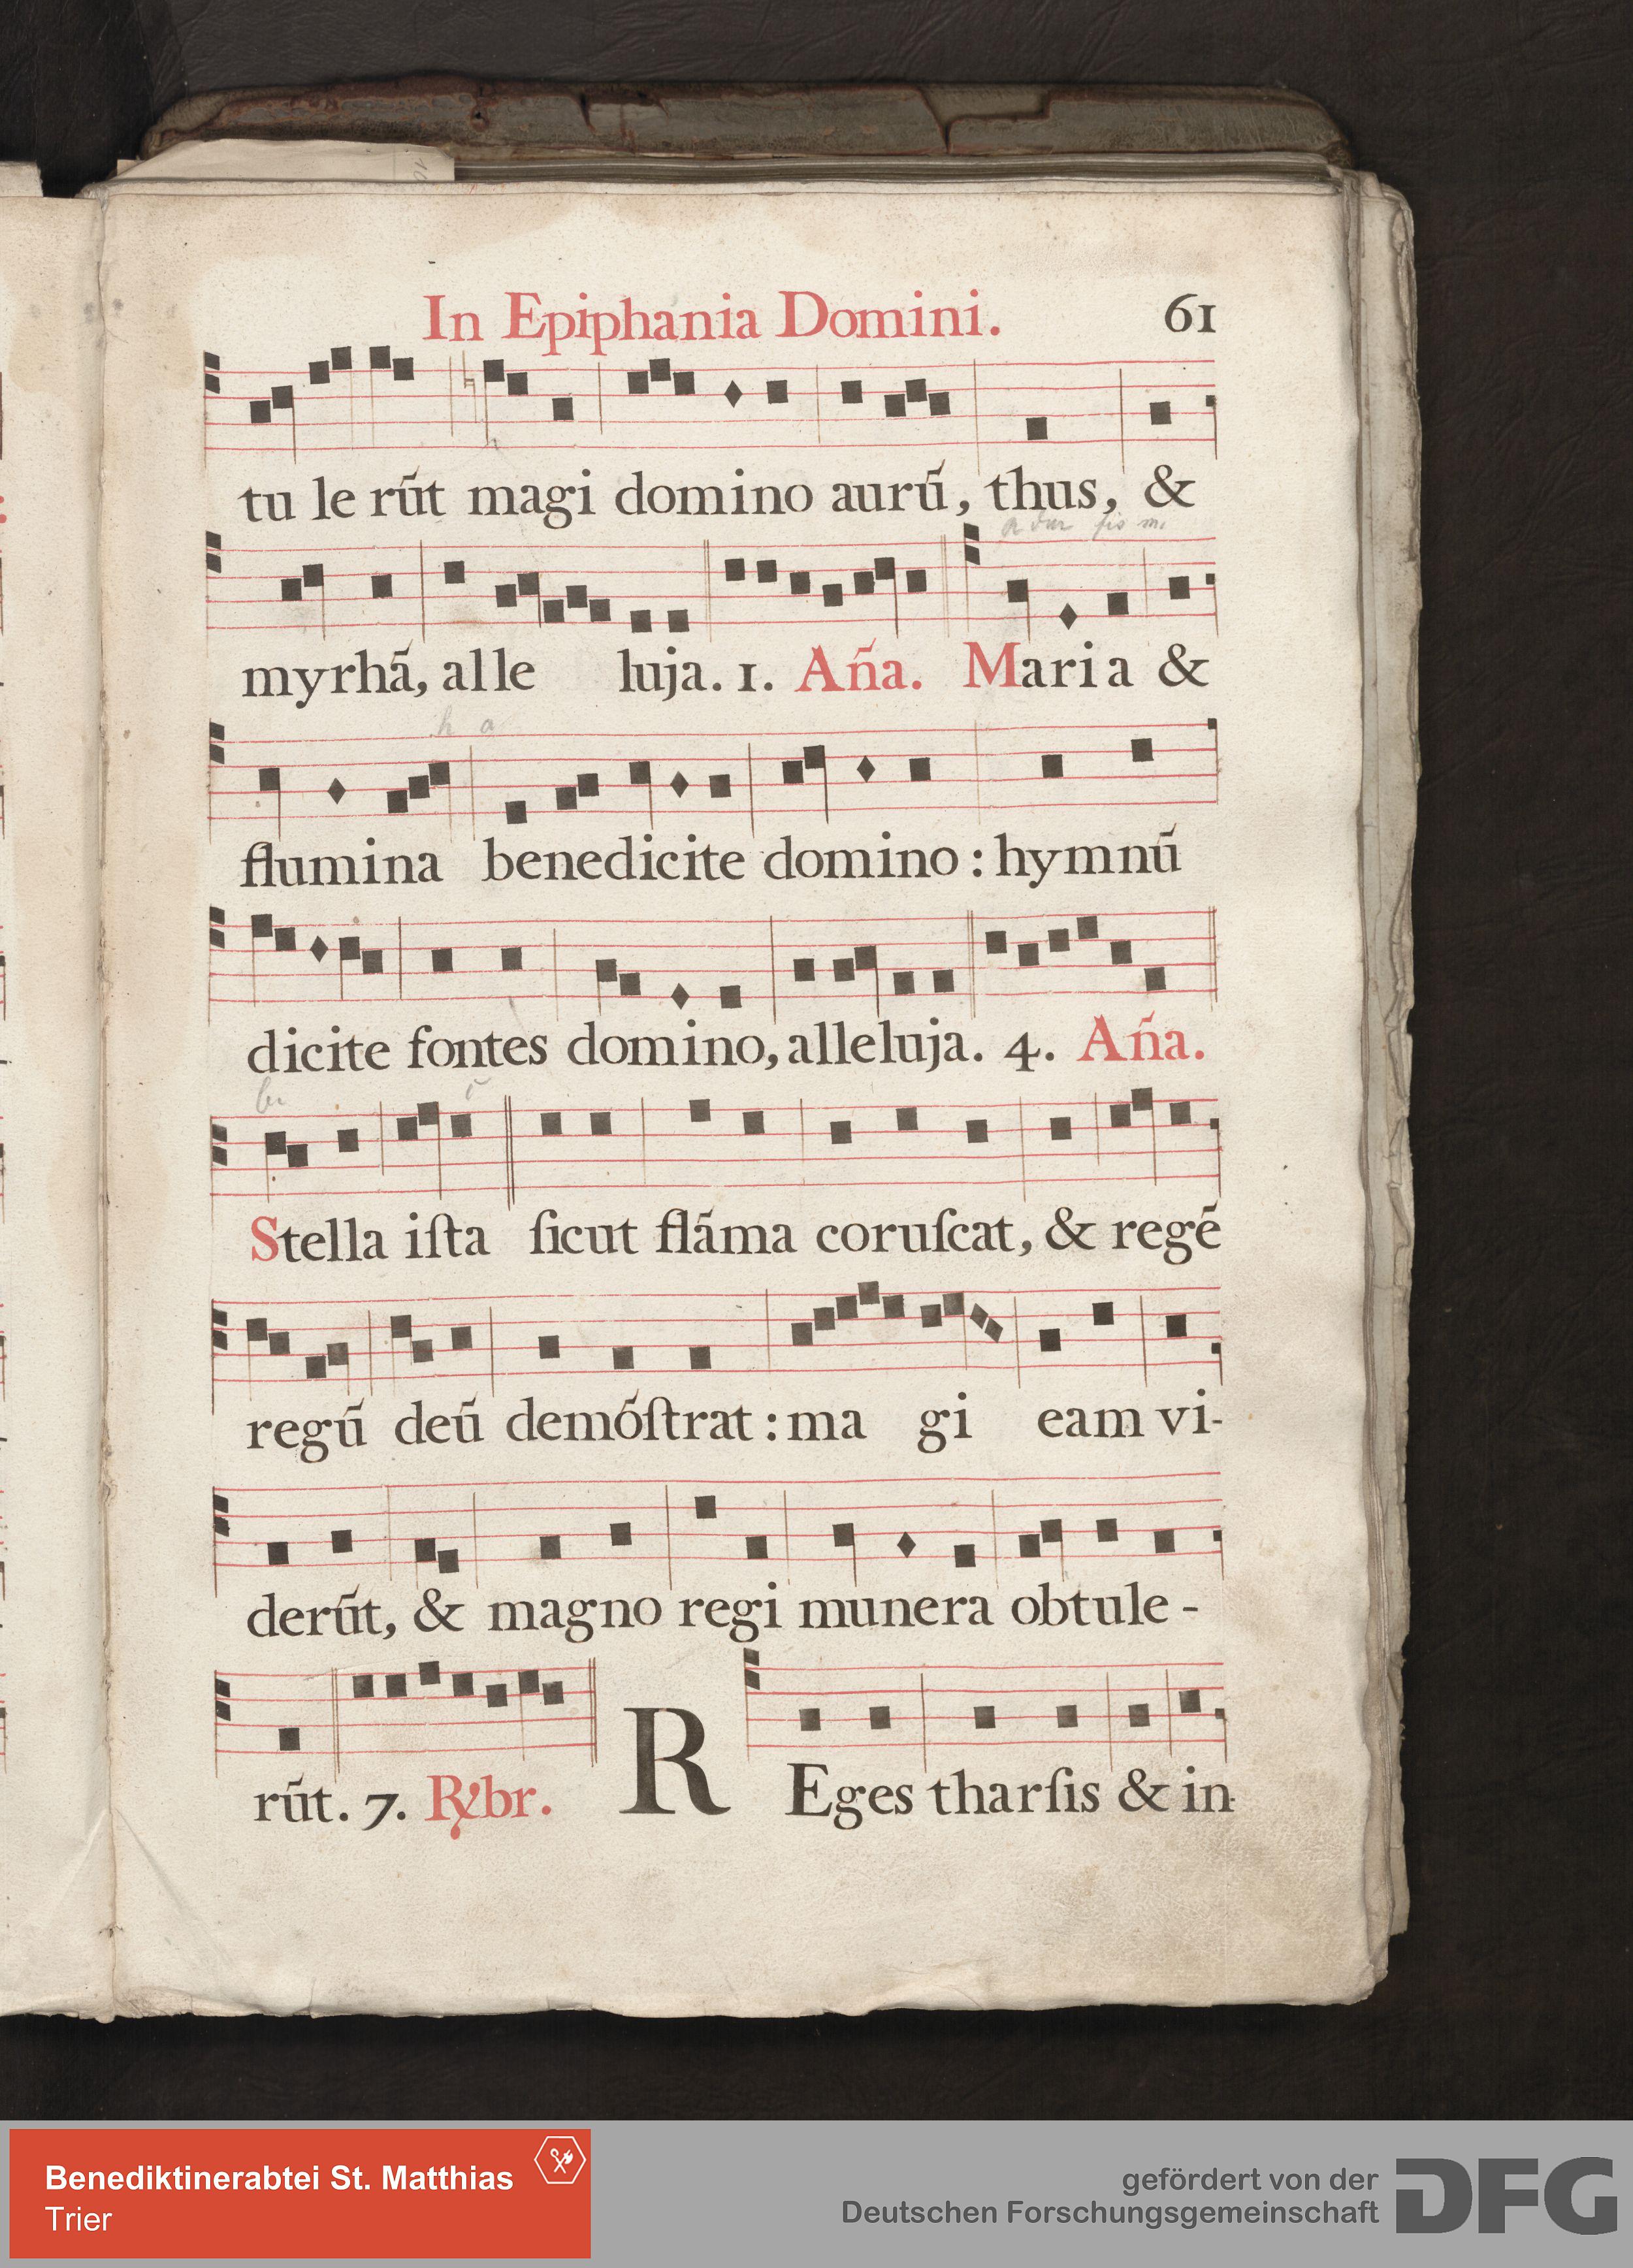 In Epiphania Domini. 61
tu le rũt magi domino aurũ, thus, &
myrhã, alle luja. 1. Aña. Maria &
flumina benedicite domino : hymnũ
dicite fontes domino, alleluja. 4. Aña.
Stella iſta ſicut flãma coruſcat, & regẽ
regũ deũ demõſtrat : ma gi eam vi-
derũt, & magno regi munera obtule-
rũt. 7. R℣br. REges tharſis & in-
Benediktinerabtei St. Matthias
Trier
gefördert von der
Deutschen Forschungsgemeinschaft
DFG